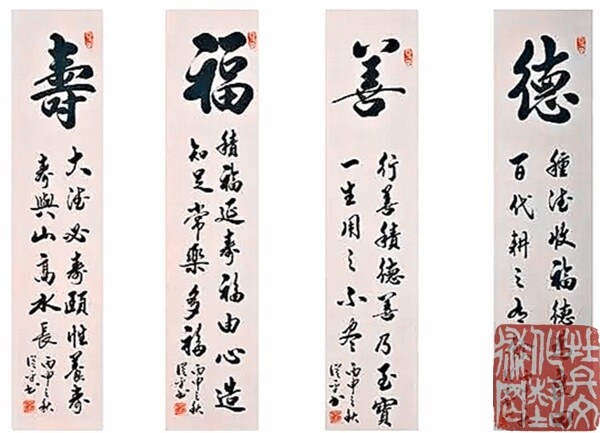 德
種德收福德
百代耕之
善
行善積德善乃至寶
一生用之不盡
丙申之秋
福
積福延壽福由心造
知足常樂多福
丙申之秋
壽
大德必壽頤性養壽
壽與山高水長
丙申之秋